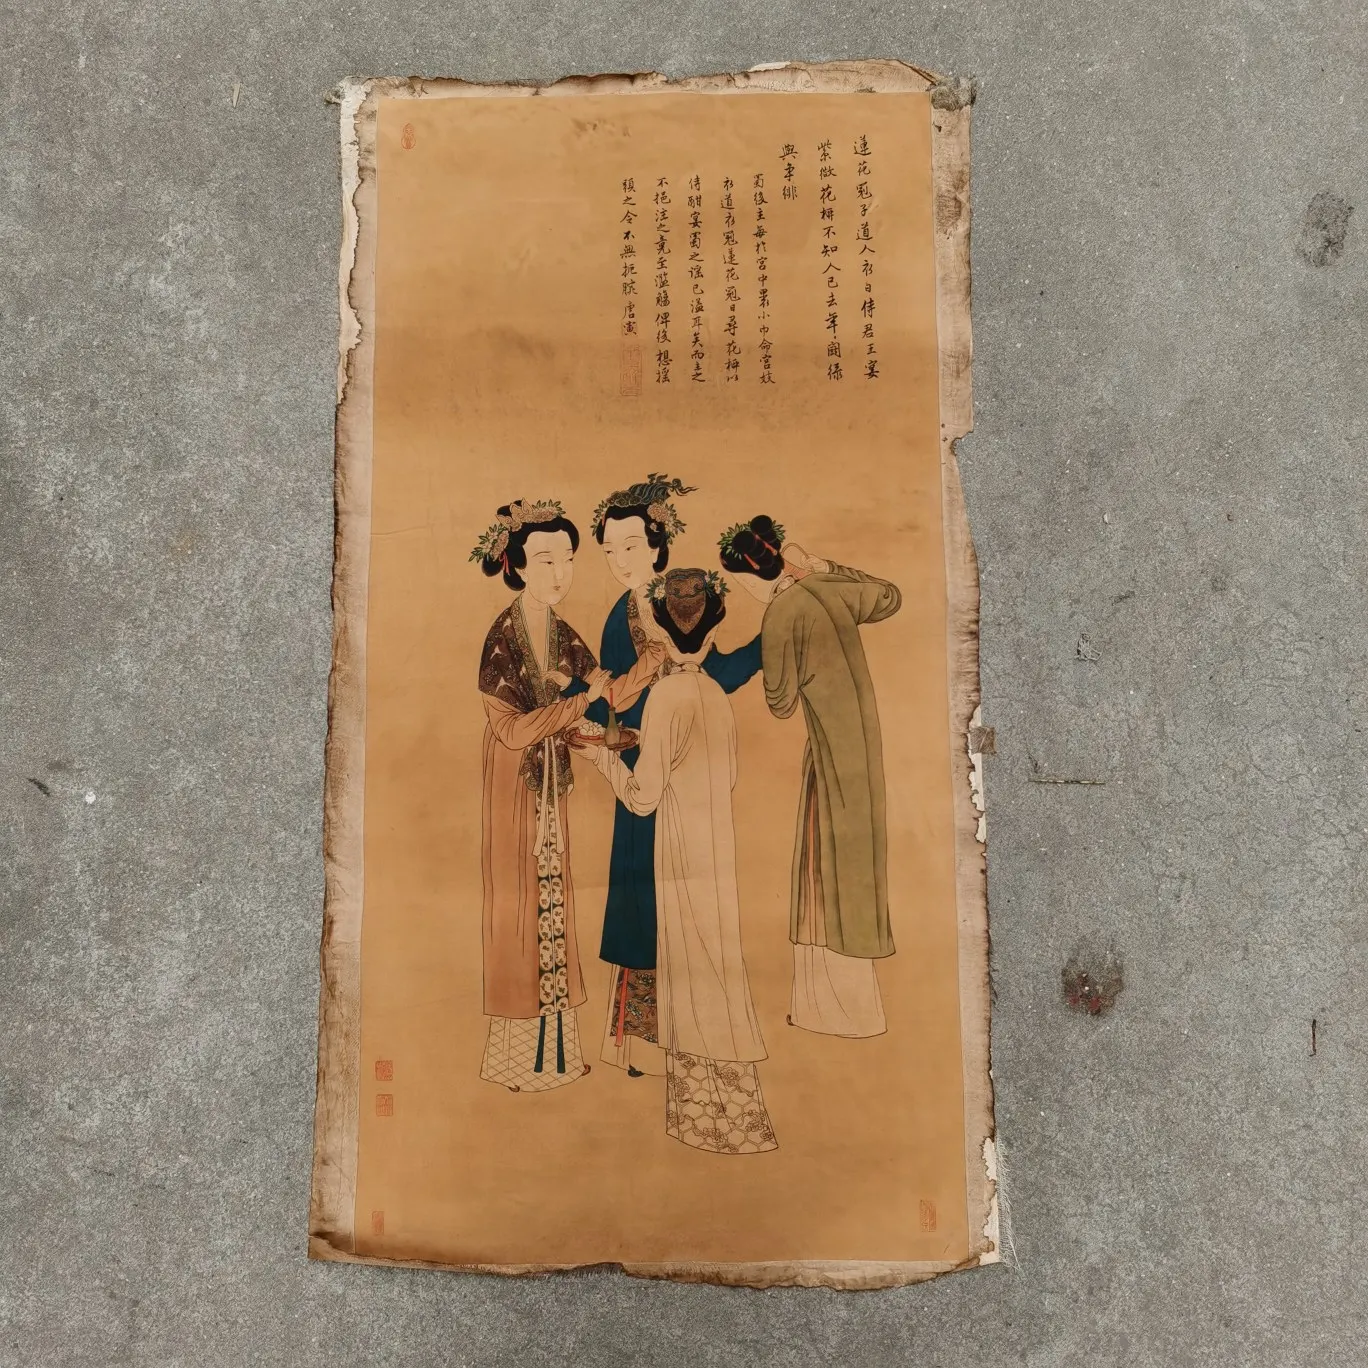 蓮花冠子道人衣日侍君王宴
紫微花柳不知人已去年々鬪綠
與爭緋
蜀後主每於宮中裹小巾命宮妓
衣道衣冠蓮花冠日尋花柳以
侍酣宴蜀之謠已溢耳矣而主之
不挹注之竟至濫觴俾後想搖
頭之令不無扼腕唐寅